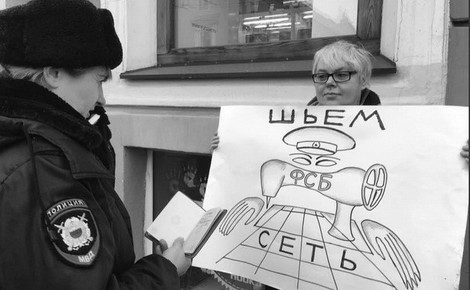 ШЬЕМ
ФСБ
СЕТЬ
ПОЛИЦИЯ
МВД